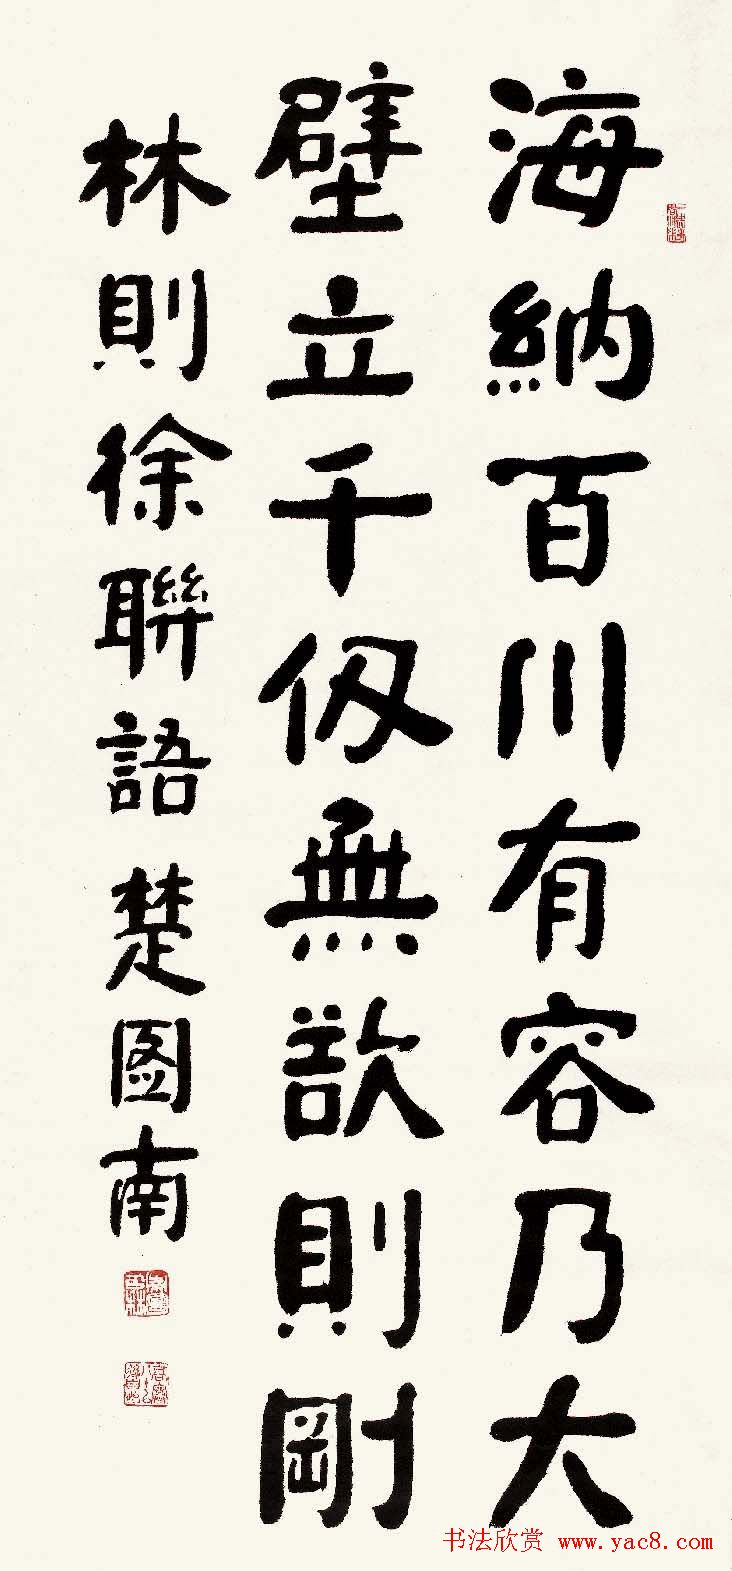 海納百川有容乃大
壁立千仭無欲則剛
林則徐聯語 楚图南
书法欣赏 www.yac8.com